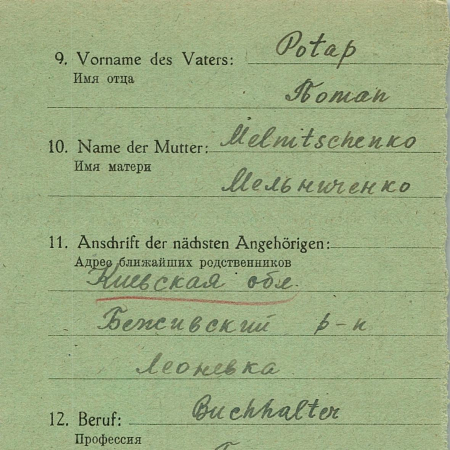 9. Vorname des Vaters: Potap
Имя отца
Потап
10. Name der Mutter: Melnitschenko
Имя матери
Мельниченко
11. Anschrift der nächsten Angehörigen:
Адрес ближайших родственников
Киевская обл.
Беживский р-н
Леоневка
12. Beruf: Buchhalter
Профессия